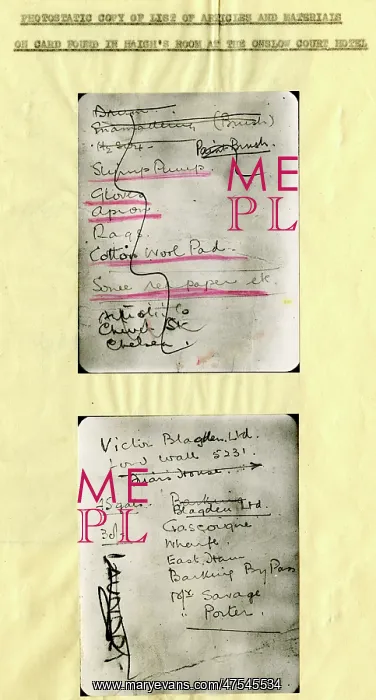 PHOTOSTATIC COPY OF LIST OF ARTICLES AND MATERIALS
ON CARD FOUND IN HAIGH'S ROOM AT THE ONSLOW COURT HOTEL
Drum
Enamelling (Brush)
H2SO4 Paint Brush.
Stirrup Pump.
Gloves
apron
Rags.
Cotton Wool Pad.
Some newspapers etc.
Church St
Chelsea.
ME
PL
Victor Blagden Ltd.
Lord Wall 5231.
House
Barking
45 gall. Blagden Ltd.
30/- Gascoigne
Wharfe.
East Ham
Barking By Pass
Mr Savage
Porter.
LAUNDRY
ME
PL
www.maryevans.com/47545534